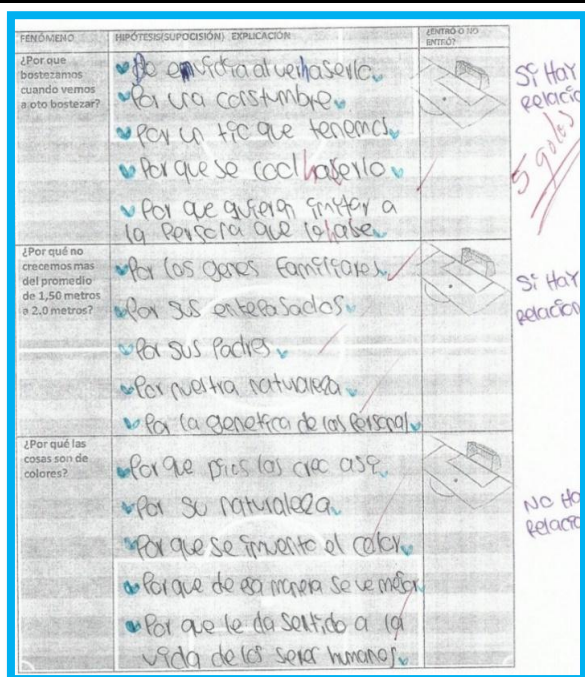 FENÓMENO HIPÓTESIS(SUPOCISIÓN) EXPLICACIÓN ¿ENTRÓ O NO
ENTRÓ?
¿Por que
bostezamos
cuando vemos
a oto bostezar?
De envidia al ver haserlo
Por una costumbre
Por un tic que tenemos
Por que se haserlo
Por que quieran imitar a
la Persona que lo hase
Si Hay
Relació
5 goles
¿Por qué no
crecemos mas
del promedio
de 1,50 metros
a 2.0 metros?
Por los genes Familiares
Por sus antepasados
Por sus Padres
Por nuestra naturaleza
Por la genetica de las Personas
Si Hay
Relación
¿Por qué las
cosas son de
colores?
Por que Dios las creo asi
Por su naturaleza
Por que se invento el color
Porque de esa manera se ve mejor
Por que le da sentido a la
vida de los seres humanos
NO Ha
Relació